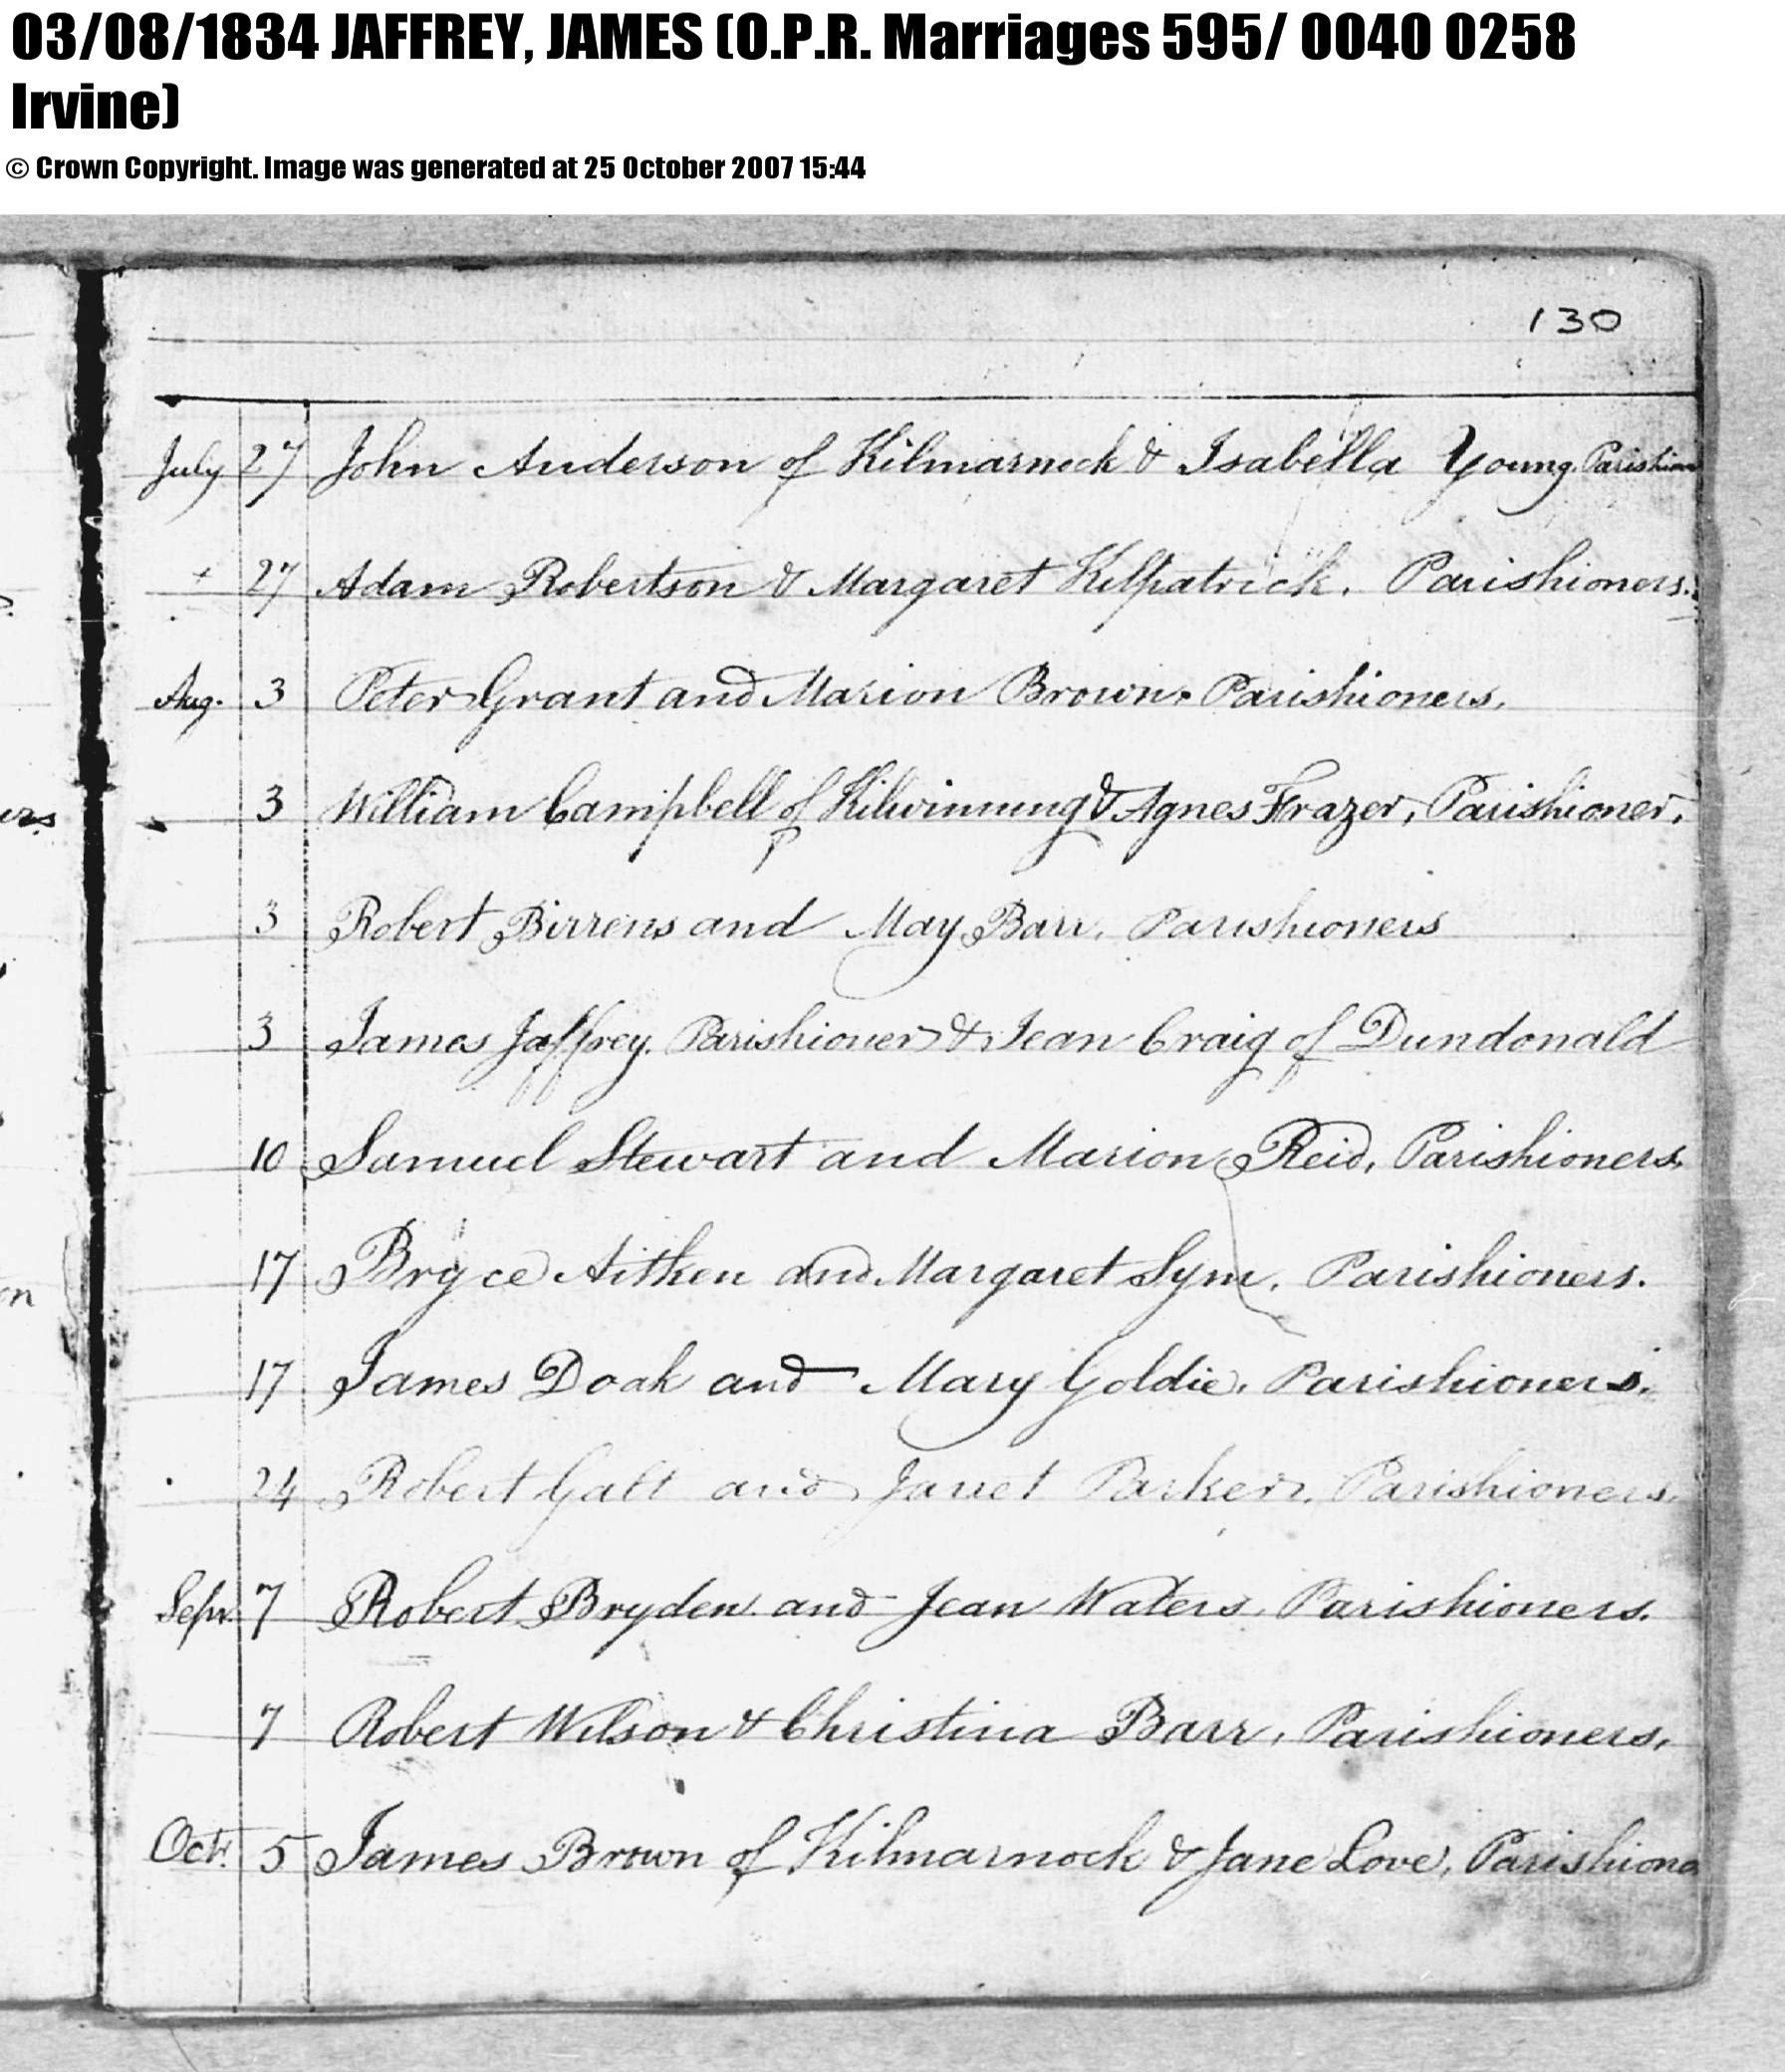 03/08/1834 JAFFREY, JAMES (O.P.R. Marriages 595/ 0040 0258
Irvine)
© Crown Copyright. Image was generated at 25 October 2007 15:44
130
July 27 John Anderson of Kilmarnock & Isabella Young. Parishion
27 Adam Robertson & Margaret Kilpatrick. Parishioners.
Aug. 3 Peter Grant and Marion Brown. Parishioners.
3 William Campbell of Kilwinnung & Agnes Frazer, Parishioner.
3 Robert Birrens and May Barr. Parishioners
3 James Jaffrey. Parishioner & Jean Craig of Dundonald
10 Samuel Stewart and Marion Reid, Parishioners
17 Bryce Aitken and Margaret Sym. Parishioners.
17 James Doak and Mary Goldie. Parishioners.
24 Robert Galt and Janet Parker. Parishioners.
Sepr. 7 Robert Bryden and Jean Waters. Parishioners.
7 Robert Wilson & Christina Barr, Parishioners.
Octr. 5 James Brown of Kilmarnock & Jane Love, Parishione